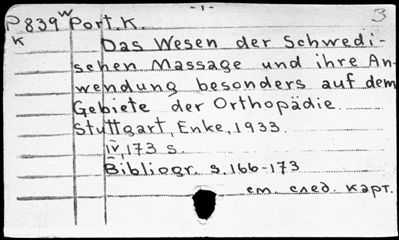 -1-
3
P839 w Port. K.
K
Das Wesen der Schwedi-
schen Massage und ihre An-
wendung besonders auf dem
Gebiete der Orthopädie.
Stuttgart, Enke, 1933.
IV, 173 s.
Bibliogr. s. 166-173
см. след. карт.